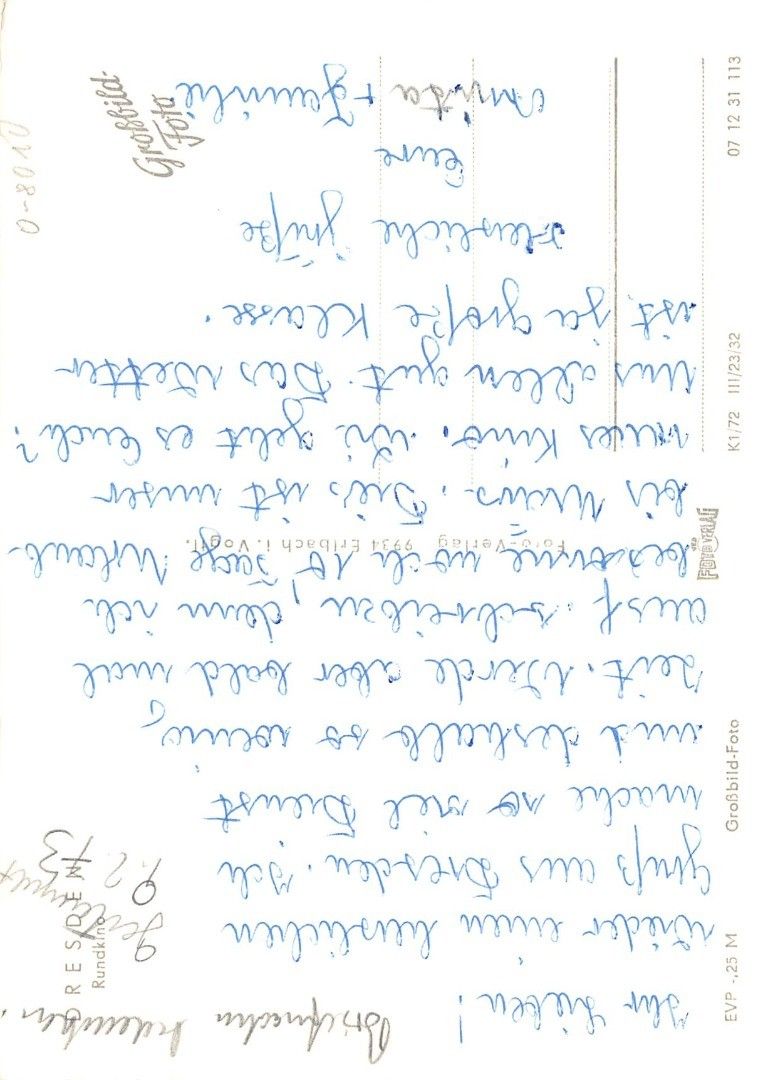 Ihr Lieben!
Wieder einen herzlichen
Gruß aus Dresden. Ich
mache so viel Dienst
und deshalb so wenig
Zeit. Werde aber bald mal
ausf. schreiben, denn ich
bekomme noch 10 Tage Urlaub
bis . Dies ist unser
neues Kino. Wie geht es Euch?
Uns allen gut. Das Wetter
ist ja große Klasse.
Herzliche Grüße
Eure
+ Familie
9.2.73
DRESDEN
Rundkino
Foto-Verlag 9934 Erlbach i. Vogtl.
Großbild-
Foto
0-8010
EVP -,25 M
Großbild-Foto
VEB
FOTO-VERLAG
K1/72 III/23/32
07 12 31 113